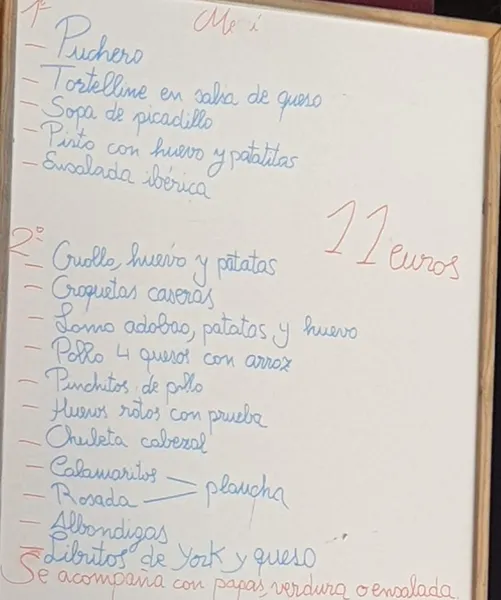 1º Menú
- Puchero
- Tortelline en salsa de queso
- Sopa de picadillo
- Pisto con huevo y patatitas
- Ensalada ibérica
11 euros
2º
- Criollo, huevo y patatas
- Croquetas caseras
- Lomo adobao, patatas y huevo
- Pollo 4 quesos con arroz
- Pinchitos de pollo
- Huevos rotos con prueba
- Chuleta cabezal
- Calamaritos
- Rosada plancha
- Albondigas
- Libritos de york y queso
Se acompaña con papas, verdura o ensalada